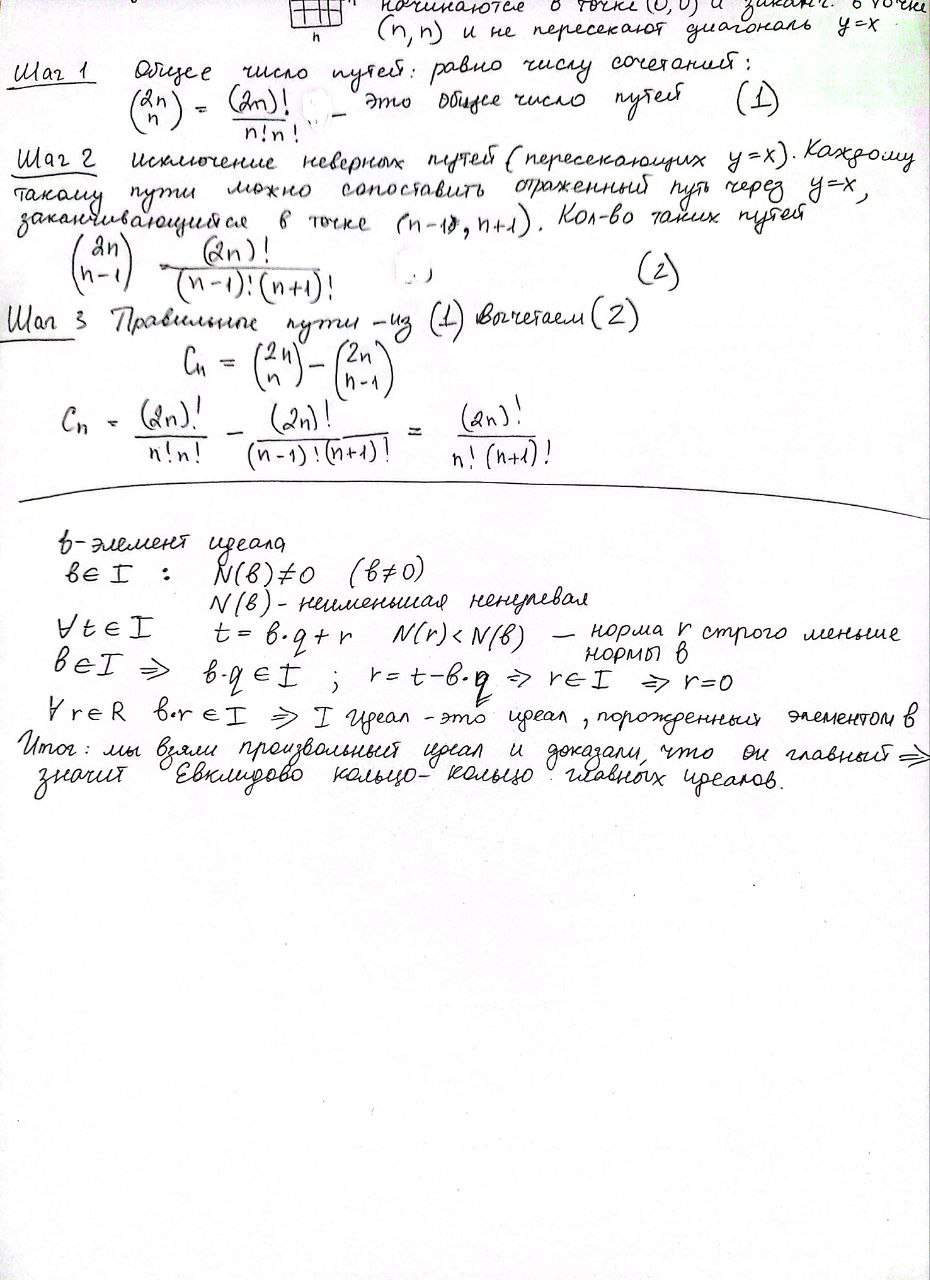 n
начинаются в точке (0, 0) и заканч. в точке
(n, n) и не пересекают диагональ y=x
Шаг 1 Общее число путей: равно числу сочетаний:
(2n n) = (2n)! / n!n! – это общее число путей (1)
Шаг 2 исключение неверных путей (пересекающих y=x). Каждому
такому пути можно сопоставить отраженный путь через y=x,
заканчивающийся в точке (n-1, n+1). Кол-во таких путей
(2n n-1) – (2n)! / (n-1)!(n+1)! (2)
Шаг 3 Правильные пути – из (1) вычетаем (2)
Cn = (2n n) – (2n n-1)
Cn = (2n)! / n!n! – (2n)! / (n-1)!(n+1)! = (2n)! / n!(n+1)!
в-элемент идеала
в∈I : N(в)≠0 (в≠0)
N(в) - неименьшая ненулевая
∀t∈I t = в·q + r N(r)<N(в) – норма r строго меньше
нормы в
в∈I ⇒ в·q∈I ; r = t-в·q ⇒ r∈I ⇒ r=0
∀r∈R в·r∈I ⇒ I идеал - это идеал, порожденный элементом в
Итог: мы взяли произвольный идеал и доказали, что он главный ⇒
значит Евклидово кольцо - кольцо главных идеалов.